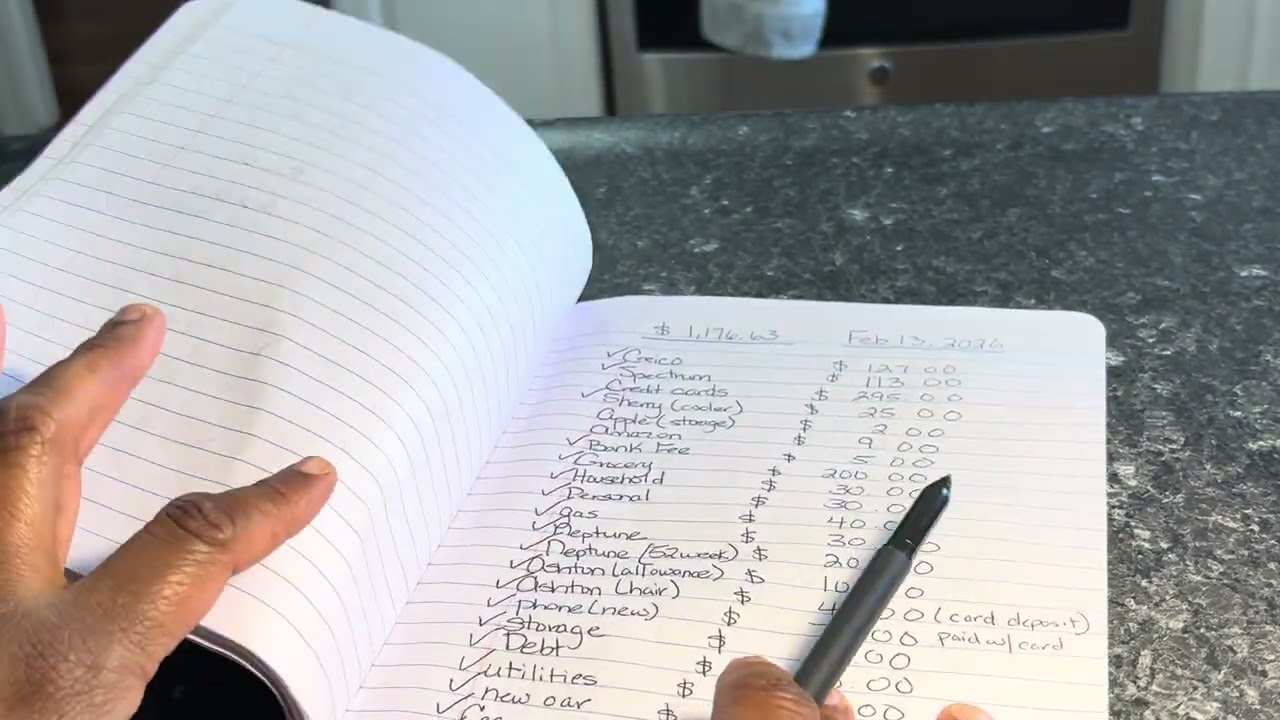 $ 1,176.63 Feb 13, 2026
✓ Geico $ 127 00
✓ Spectrum $ 113 00
✓ Credit cards $ 295 00
Sherry (cooler) $ 25 00
Apple (storage) $ 2 00
Amazon $ 9 00
✓ Bank Fee $ 5 00
✓ Grocery $ 200 00
✓ Household $ 30 00
✓ Personal $ 30.0
✓ Gas $ 40.0
✓ Neptune $ 30 0
✓ Neptune (52 week) $ 20 0
✓ Ashton (allowance) $ 10 0
✓ Ashton (hair) $ 4 00 (card deposit)
✓ phone (new) $ 00 paid w/ card
✓ Storage $ .00
✓ Debt $ .00
✓ utilities $ 00
✓ new car $